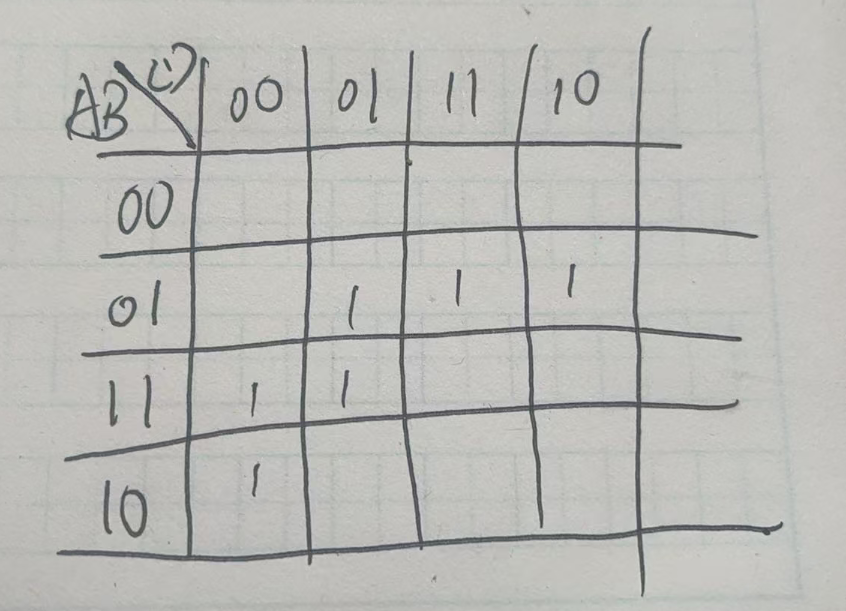 AB 00 01 11 10
00
01 1 1 1
11 1 1
10 1